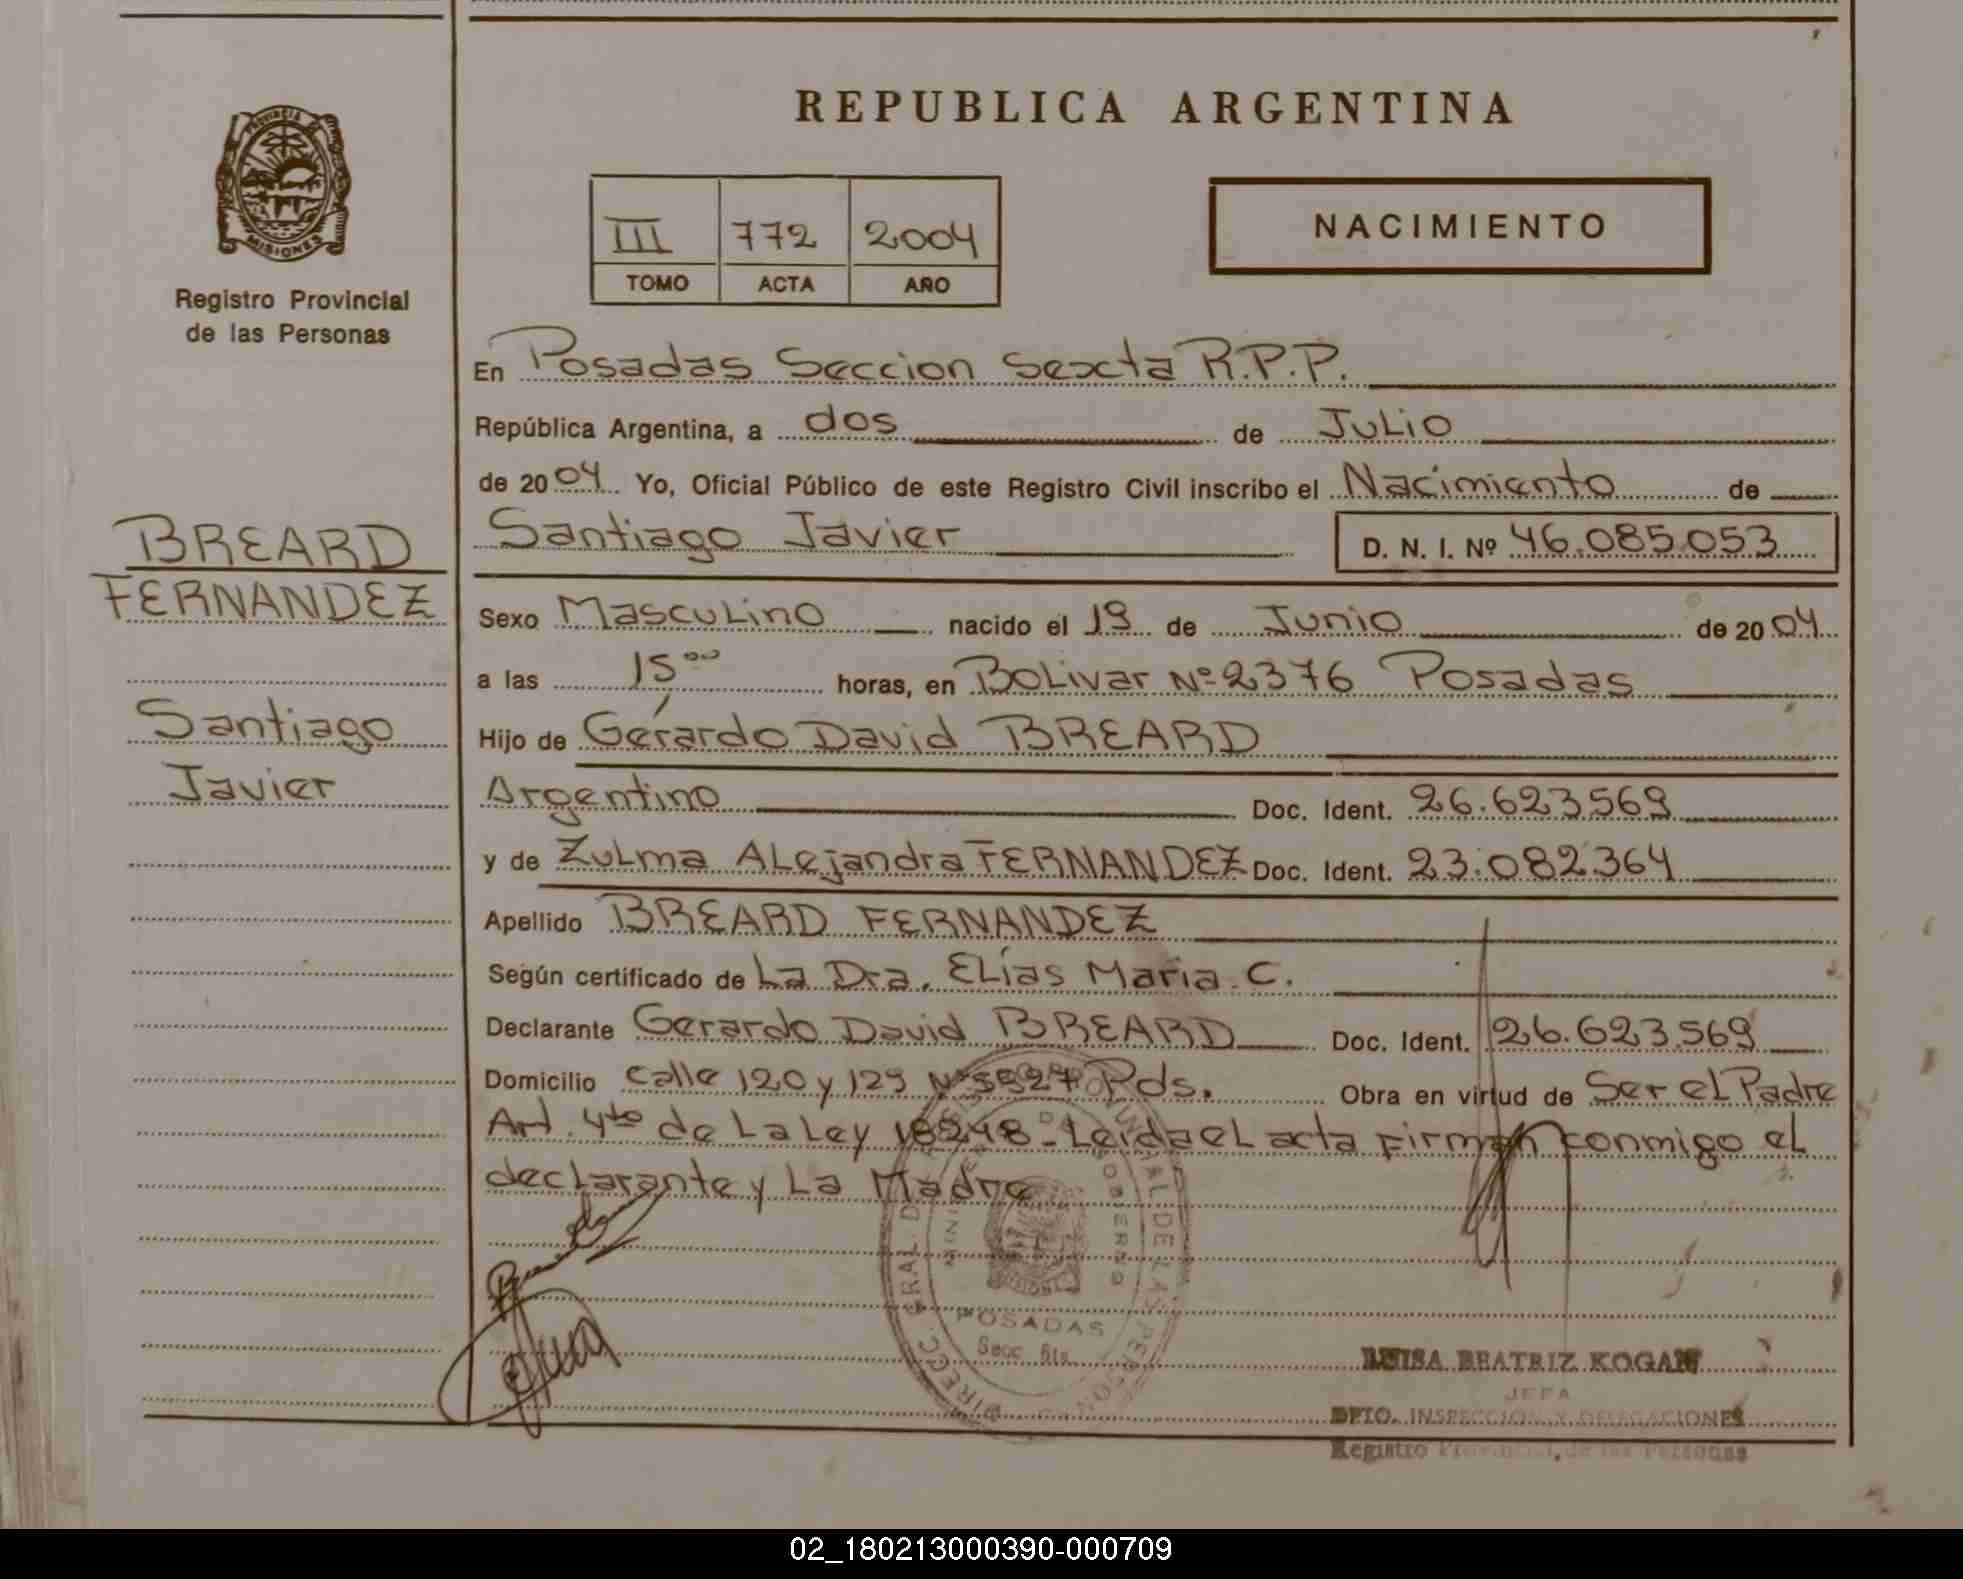 REPUBLICA ARGENTINA
PROVINCIA DE
MISIONES
Registro Provincial
de las Personas
III 772 2004
TOMO ACTA AÑO
NACIMIENTO
En Posadas Seccion Sexcta R.P.P.
República Argentina, a dos de Julio
de 2004 Yo, Oficial Público de este Registro Civil inscribo el Nacimiento de
Santiago Javier D. N. I. Nº 46.085.053
BREARD
FERNANDEZ
Santiago
Javier
Sexo Masculino nacido el 19 de Junio de 2004
a las 15⁰⁰ horas, en Bolivar Nº 2376 Posadas
Hijo de Gerardo David BREARD
Argentino Doc. Ident. 26.623.569
y de Zulma Alejandra FERNANDEZ Doc. Ident. 23.082.364
Apellido BREARD FERNANDEZ
Según certificado de La Dra. Elías Maria C.
Declarante Gerardo David BREARD Doc. Ident. 26.623.569
Domicilio calle 120 y 129 Pds. Obra en virtud de Ser el Padre
Art. 4to de La Ley 18248 - Leida el acta firman conmigo el
declarante y La Madre
POSADAS
Secc. 6ta.
LUISA BEATRIZ KOGAN
JEFA
DPTO. INSPECCION Y DELEGACIONES
Registro Provincial de las Personas
02_180213000390-000709